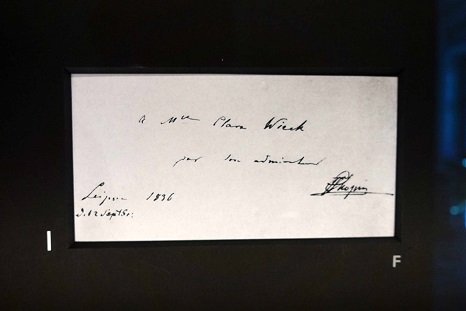 a Mlle Clara Wieck
par son admirateur
FChopin
Leipsic 1836
d. 12 Sept.
I
F